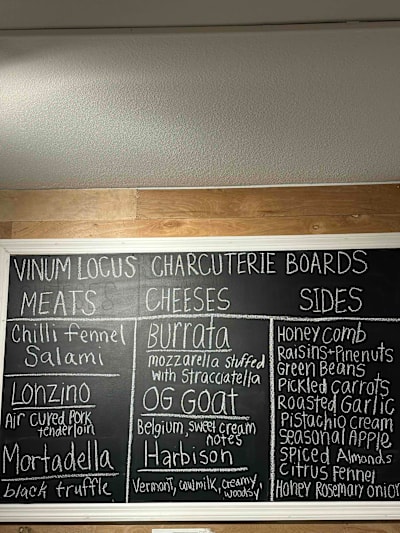 VINUM LOCUS CHARCUTERIE BOARDS
MEATS
Chilli fennel
Salami
Lonzino
Air cured Pork
tenderloin
Mortadella
black truffle
CHEESES
Burrata
mozzarella stuffed
with Stracciatella
OG Goat
Belgium, sweet cream
notes
Harbison
Vermont, cowmilk, creamy,
woodsy
SIDES
Honey comb
Raisins+Pinenuts
Green Beans
Pickled carrots
Roasted Garlic
Pistachio cream
Seasonal Apple
Spiced Almonds
Citrus Fennel
Honey Rosemary onior